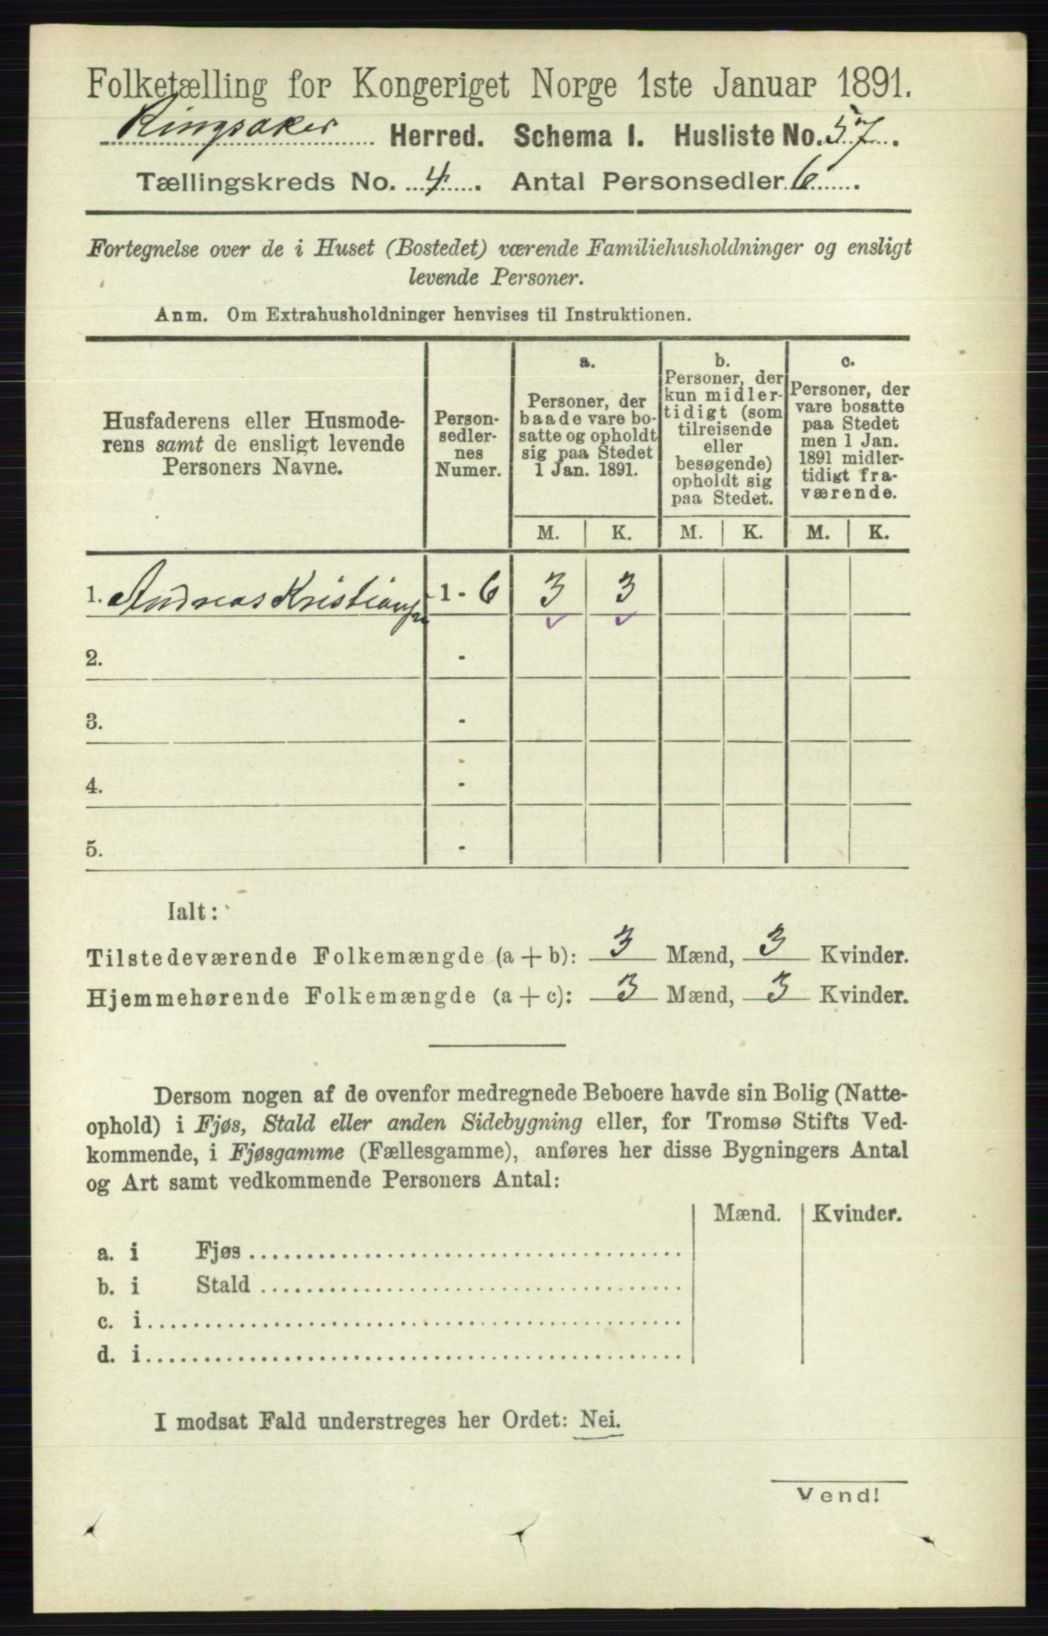 Folketælling for Kongeriget Norge 1ste Januar 1891.
Ringsaker Herred. Schema I. Husliste No. 57.
Tællingskreds No. 4. Antal Personsedler 6.
Fortegnelse over de i Huset (Bostedet) værende Familiehusholdninger og ensligt
levende Personer.
Anm. Om Extrahusholdninger henvises til Instruktionen.
Husfaderens eller Husmode-
rens samt de ensligt levende
Personers Navne.
Person-
sedler-
nes
Numer.
a.
Personer, der
baade vare bo-
satte og opholdt
sig paa Stedet
1 Jan. 1891.
b.
Personer, der
kun midler-
tidigt (som
tilreisende
eller
besøgende)
opholdt sig
paa Stedet.
c.
Personer, der
vare bosatte
paa Stedet
men 1 Jan.
1891 midler-
tidigt fra-
værende.
M. K. M. K. M. K.
1. Andreas Kristiansen 1 - 6 3 3
2. -
3. -
4. -
5. -
Ialt:
Tilstedeværende Folkemængde (a + b): 3 Mænd, 3 Kvinder.
Hjemmehørende Folkemængde (a + c): 3 Mænd, 3 Kvinder.
Dersom nogen af de ovenfor medregnede Beboere havde sin Bolig (Natte-
ophold) i Fjøs, Stald eller anden Sidebygning eller, for Tromsø Stifts Ved-
kommende, i Fjøsgamme (Fællesgamme), anføres her disse Bygningers Antal
og Art samt vedkommende Personers Antal:
Mænd. Kvinder.
a. i Fjøs
b. i Stald
c. i
d. i
I modsat Fald understreges her Ordet: Nei.
Vend!